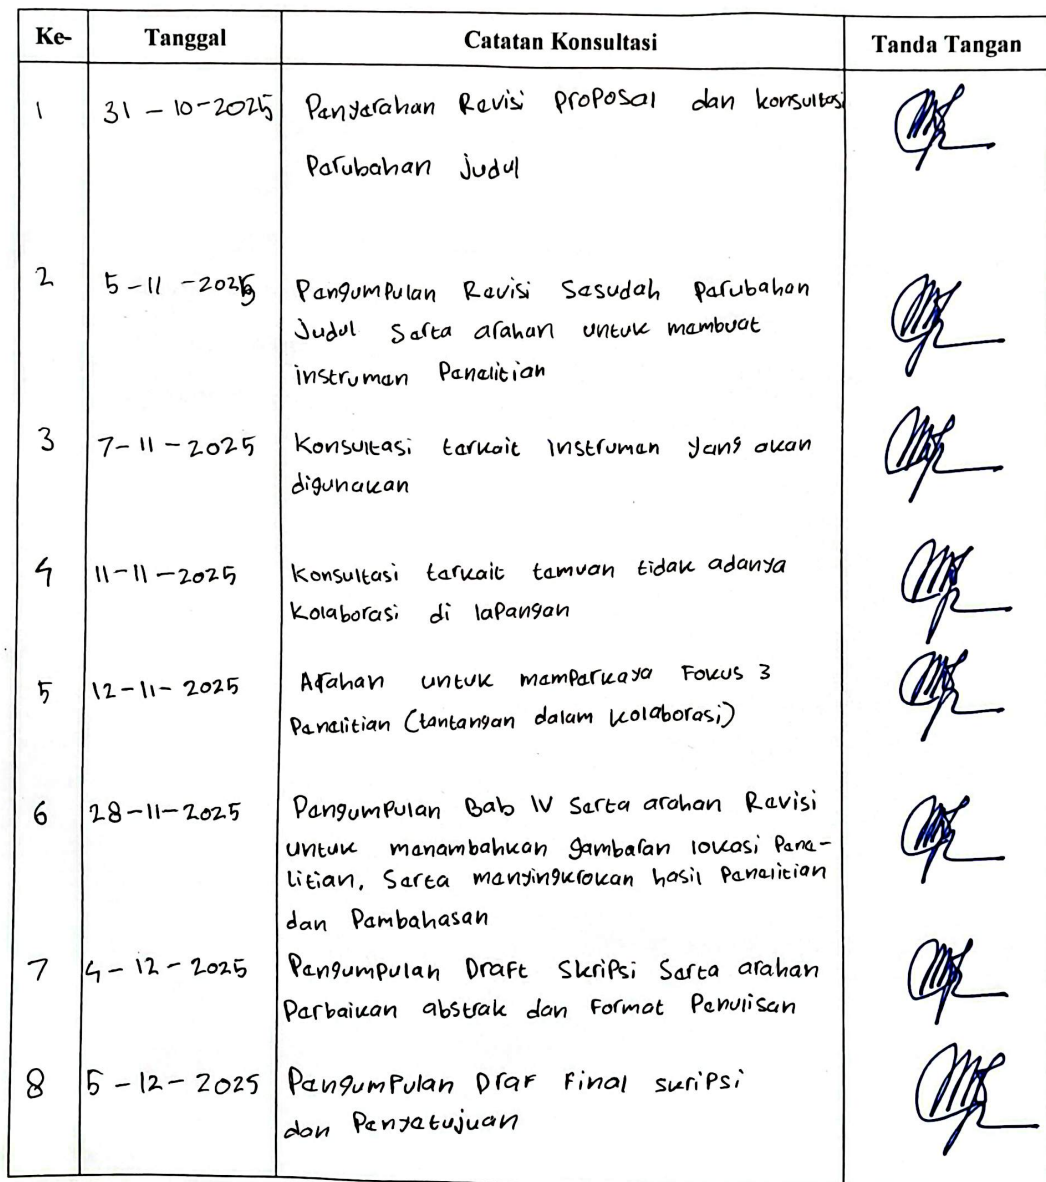 Ke- Tanggal Catatan Konsultasi Tanda Tangan
1 31 - 10 - 2025 Penyerahan Revisi proposal dan konsultasi
Perubahan judul
2 5 - 11 - 2025 Pengumpulan Revisi Sesudah perubahan
judul Serta arahan untuk membuat
instrumen Penelitian
3 7 - 11 - 2025 Konsultasi terkait Instrumen yang akan
digunakan
4 11 - 11 - 2025 Konsultasi terkait temuan tidak adanya
kolaborasi di lapangan
5 12 - 11 - 2025 Arahan untuk memperkaya Fokus 3
Penelitian (tantangan dalam kolaborasi)
6 28 - 11 - 2025 Pengumpulan Bab IV Serta arahan Revisi
untuk menambahkan gambaran lokasi Pene-
litian, Serta menyingkrokan hasil Penelitian
dan Pembahasan
7 4 - 12 - 2025 Pengumpulan Draft Skripsi Serta arahan
Perbaikan abstrak dan Format Penulisan
8 5 - 12 - 2025 Pengumpulan Draf Final skripsi
dan Penyetujuan